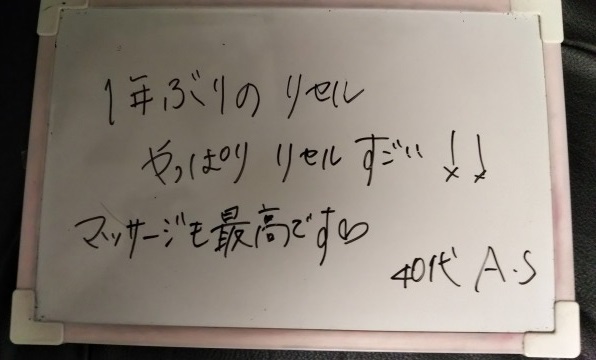 1年ぶりの リセル
やっぱり リセル すごい!!
マッサージも最高です♡
40代 A.S